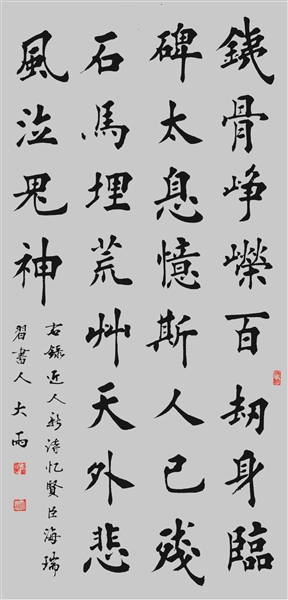 鐵骨崢嶸百劫身臨
碑太息憶斯人已殘
石馬埋荒艸天外悲
風泣鬼神
右錄近人新詩忆賢臣海瑞
習書人大雨